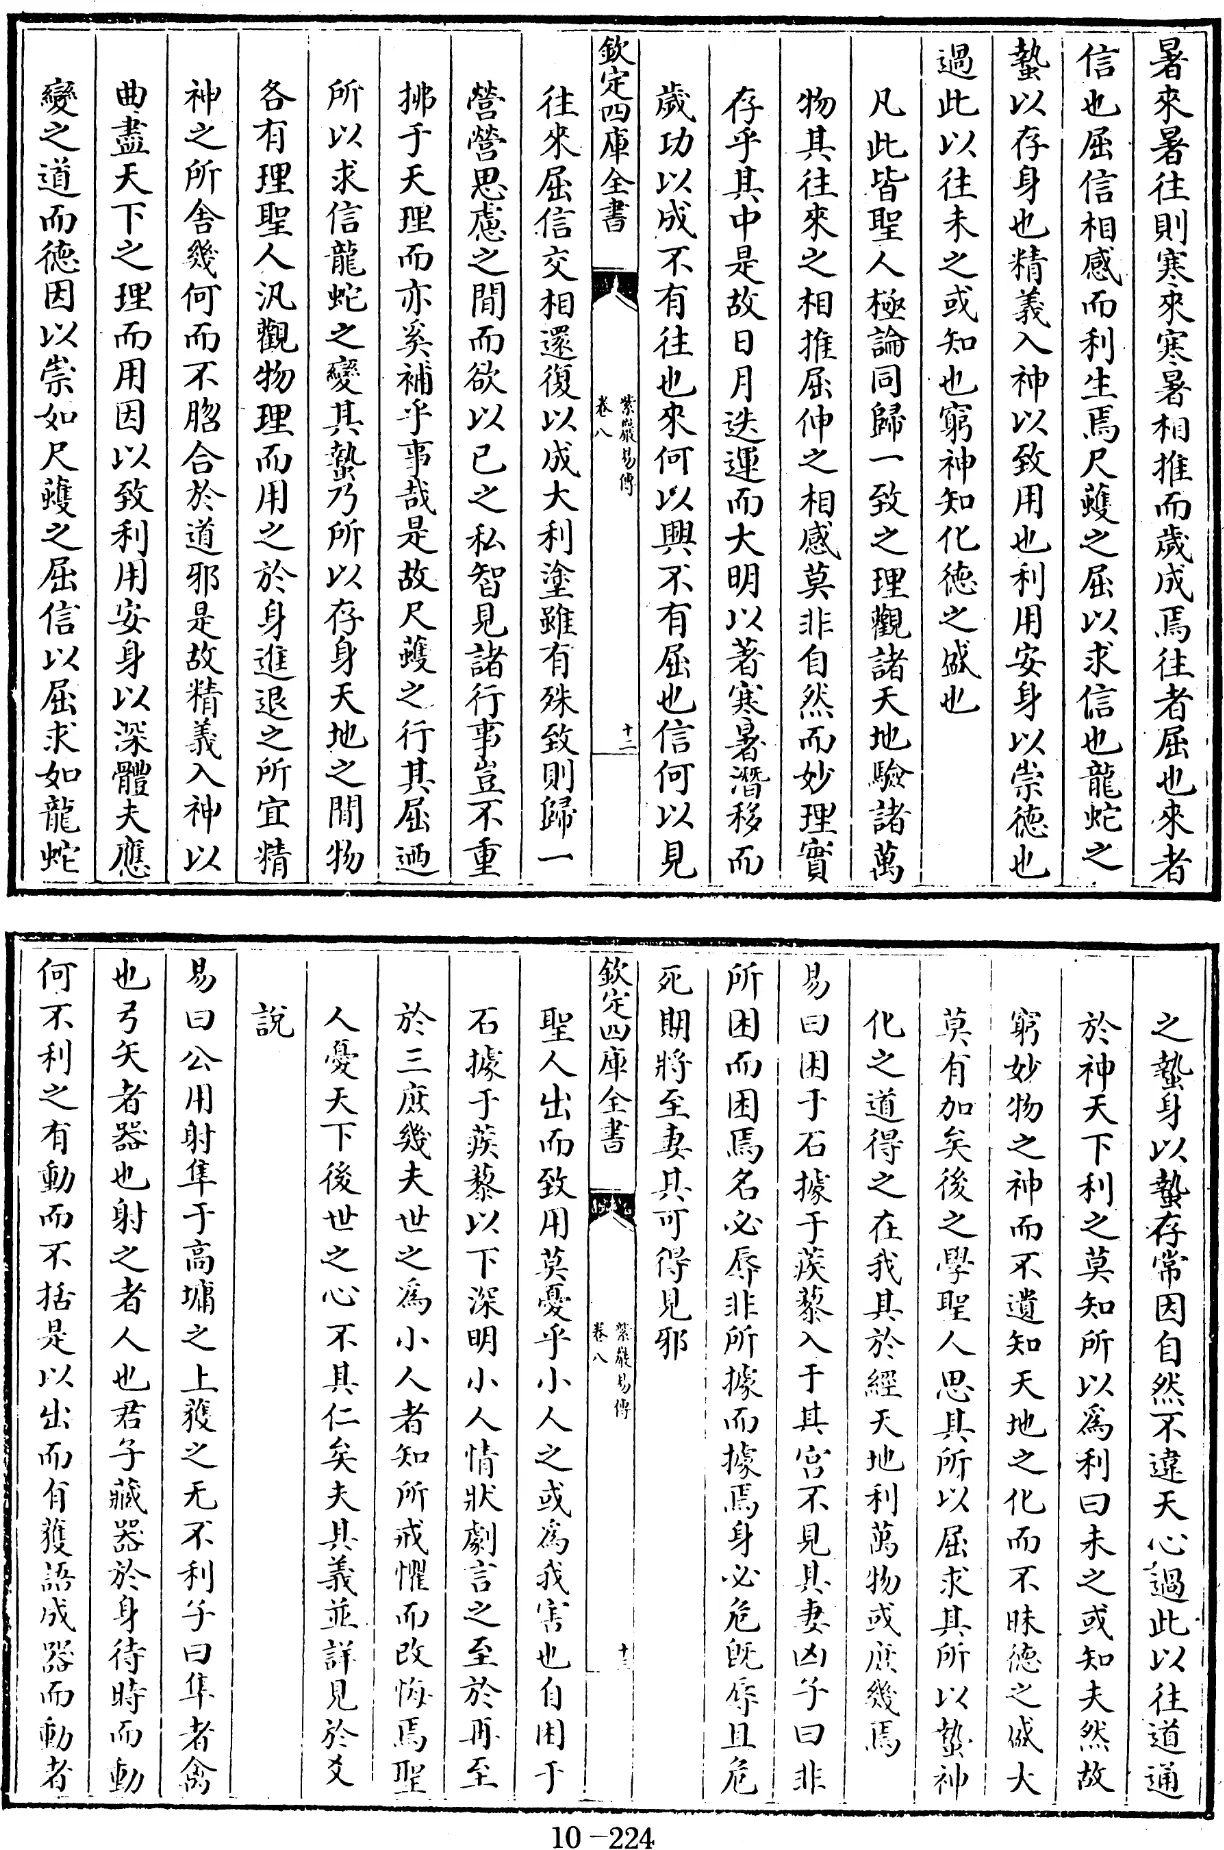 暑來暑往則寒來寒暑相推而歲成焉往者屈也來者
信也屈信相感而利生焉尺蠖之屈以求信也龍蛇之
蟄以存身也精義入神以致用也利用安身以崇德也
過此以往未之或知也窮神知化德之盛也
凡此皆聖人極論同歸一致之理觀諸天地驗諸萬
物其往來之相推屈伸之相感莫非自然而妙理實
存乎其中是故日月迭運而大明以著寒暑潛移而
歲功以成不有往也來何以興不有屈也信何以見
欽定四庫全書
紫巖易傳
卷八
十二
往來屈信交相還復以成大利塗雖有殊致則歸一
營營思慮之間而欲以已之私智見諸行事豈不重
拂于天理而亦奚補乎事哉是故尺蠖之行其屈迺
所以求信龍蛇之變其蟄乃所以存身天地之間物
各有理聖人汎觀物理而用之於身進退之所宜精
神之所舍幾何而不脗合於道邪是故精義入神以
曲盡天下之理而用因以致利用安身以深體夫應
變之道而德因以崇如尺蠖之屈信以屈求如龍蛇
之蟄身以蟄存常因自然不違天心過此以往道通
於神天下利之莫知所以爲利曰未之或知夫然故
窮妙物之神而不遺知天地之化而不昧德之盛大
莫有加矣後之學聖人思其所以屈求其所以蟄神
化之道得之在我其於經天地利萬物或庶幾焉
易曰困于石據于蒺藜入于其宫不見其妻凶子曰非
所困而困焉名必辱非所據而據焉身必危既辱且危
死期將至妻其可得見邪
欽定四庫全書
紫巖易傳
卷八
十三
聖人出而致用莫憂乎小人之或爲我害也自困于
石據于蒺藜以下深明小人情狀劇言之至於再至
於三庶幾夫世之爲小人者知所戒懼而改悔焉聖
人憂天下後世之心不其仁矣夫其義並詳見於爻
說
易曰公用射隼于高墉之上獲之无不利子曰隼者禽
也弓矢者器也射之者人也君子藏器於身待時而動
何不利之有動而不括是以出而有獲語成器而動者
10-224